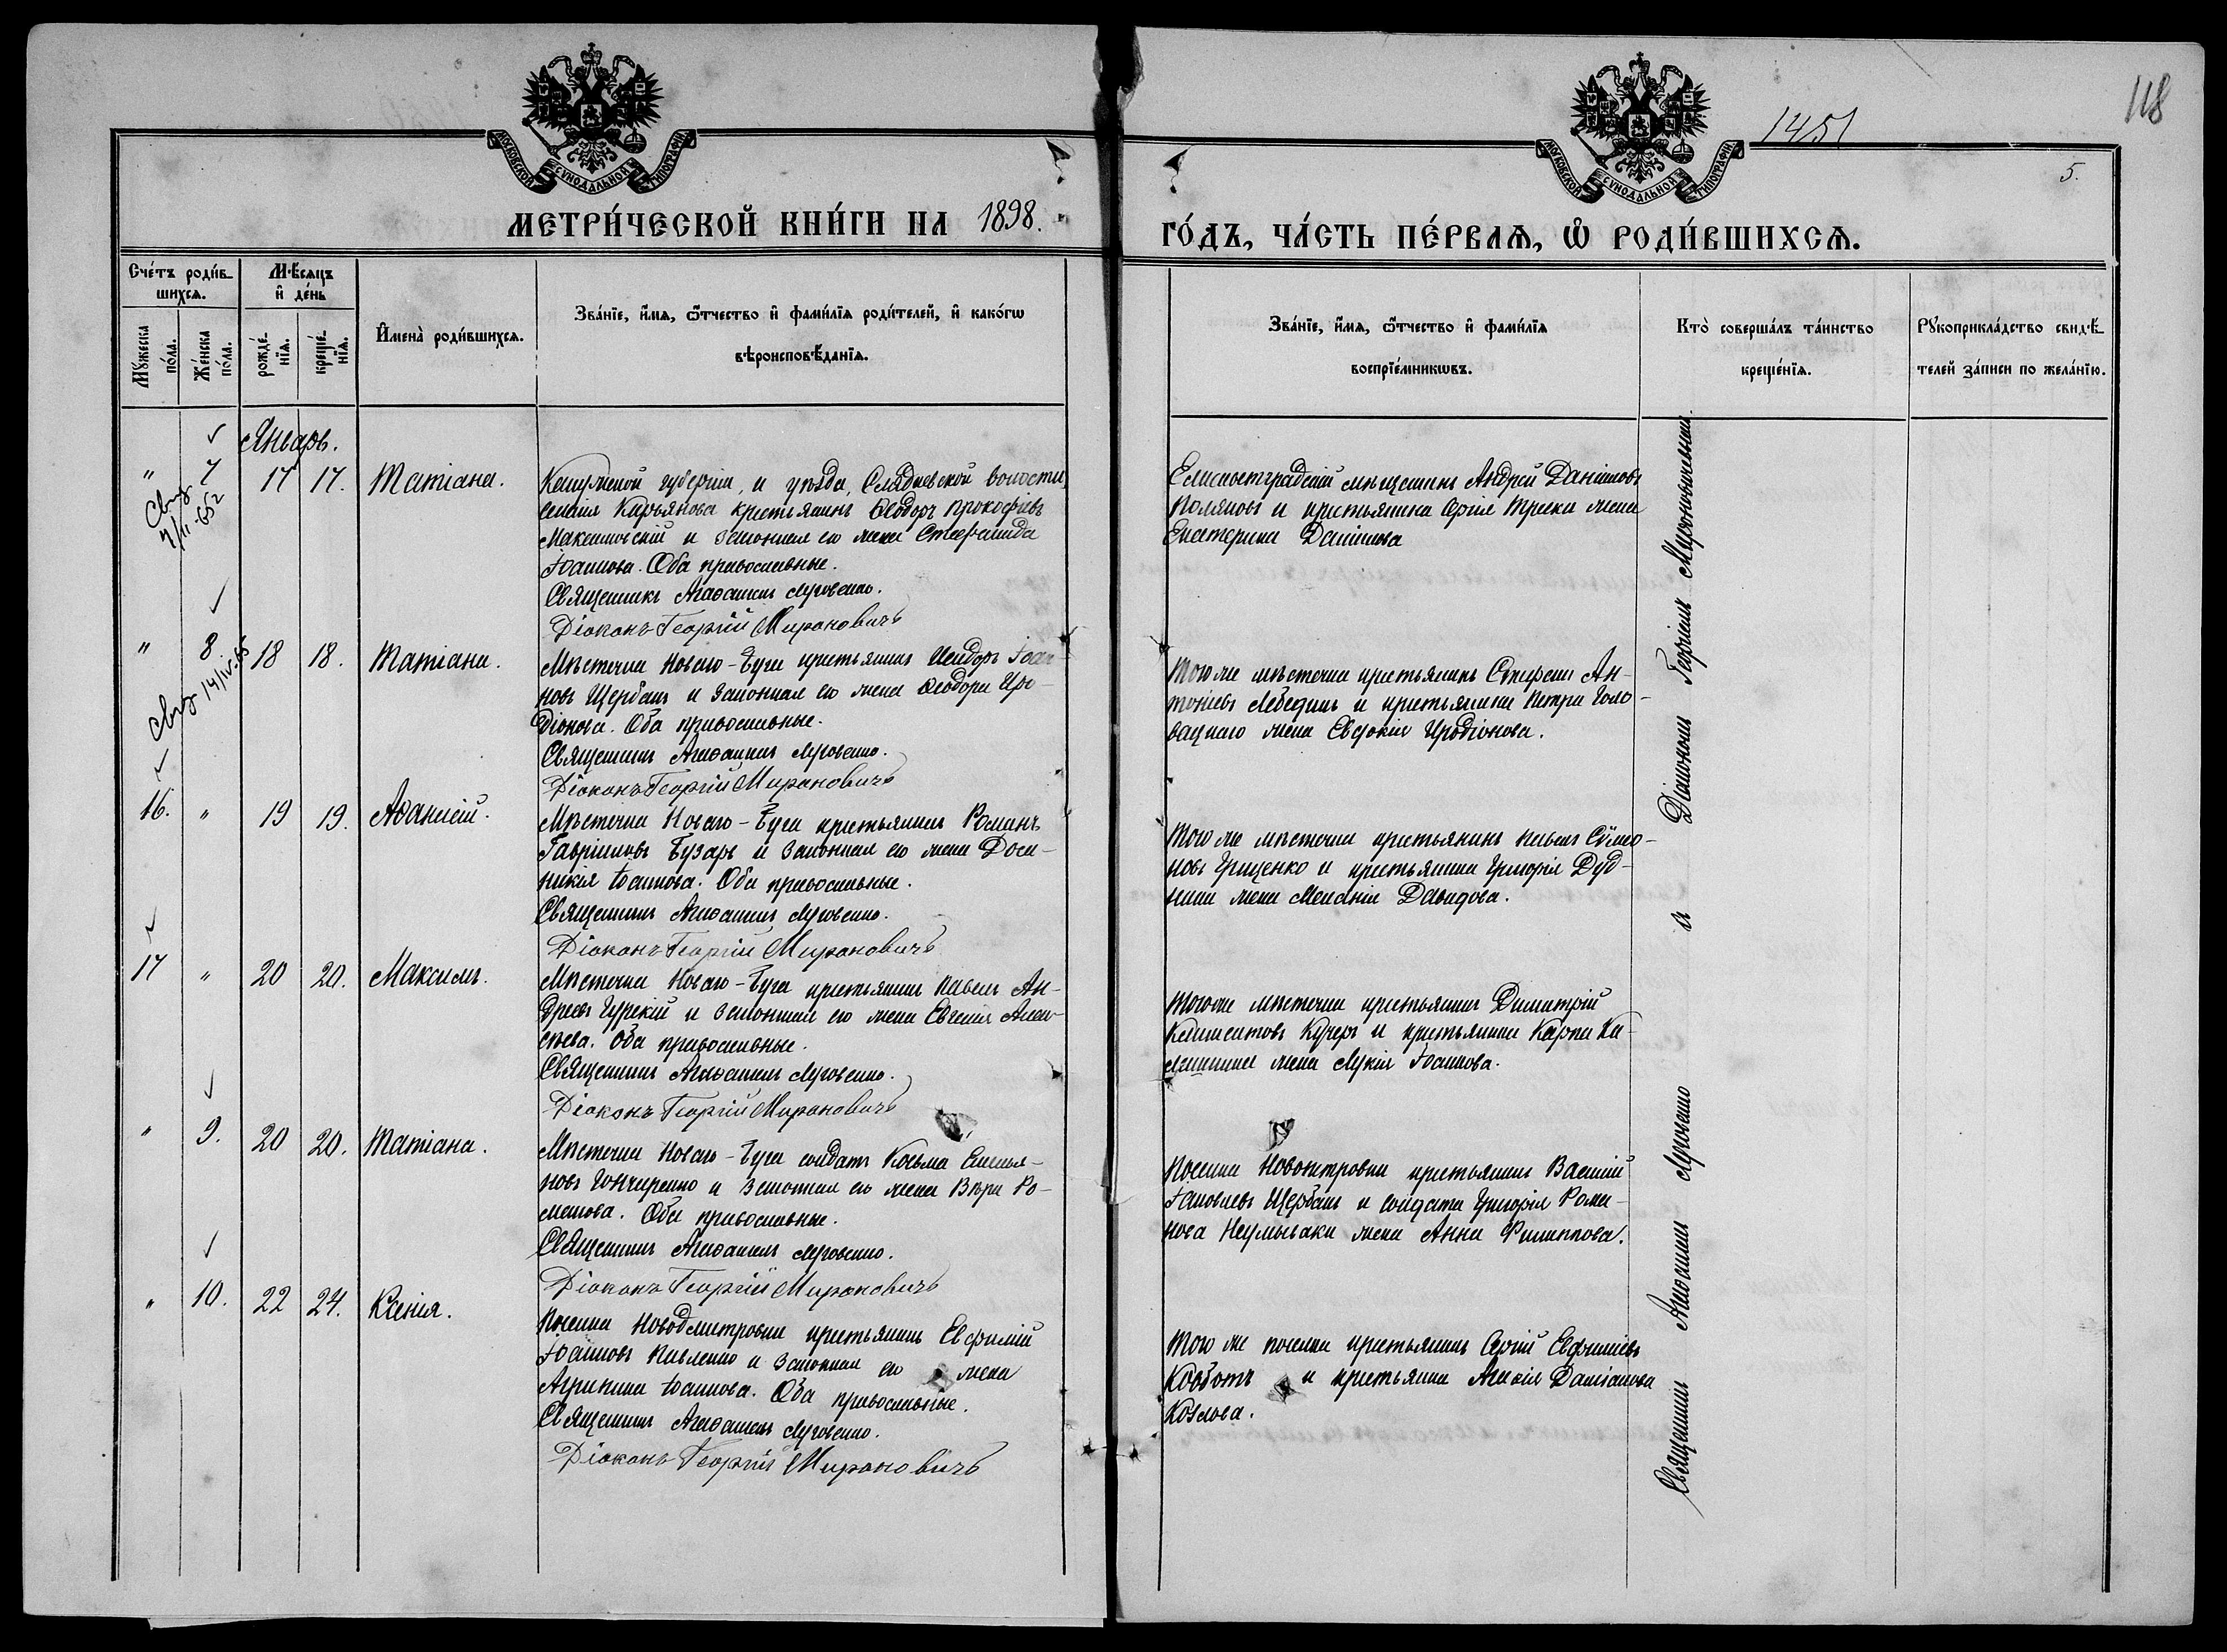 118
1451
5.
МОСКОВСКОЙ СУНОДАЛЬНОЙ ТИПОГРАФIИ
МОСКОВСКОЙ СУНОДАЛЬНОЙ ТИПОГРАФIИ
МЕТРИ́ЧЕСКОЙ КНИ́ГИ НА 1898.
ГО́ДЪ, ЧА́СТЬ ПЕ́РВАѦ, Ѡ҆ РОДИ́ВШИХСѦ.
Сче́тъ роди́в-
шихсѧ.
Мѣ́сяцъ
и҆ де́нь
Мꙋ́жеска
по́ла.
Же́нска
по́ла.
рожде́-
нїѧ.
креще́-
нїѧ.
И҆мена̀ роди́вшихсѧ.
Зва́нїе, и҆́мѧ, ѻ҆́тчество и҆ фами́лїѧ роди́телей, и҆ како́гѡ
вѣроисповѣ́данїѧ.
Зва́нїе, и҆́мѧ, ѻ҆́тчество и҆ фами́лїѧ
воспрїе́мникѡвъ.
Кто̀ соверша́лъ та́инство
креще́нїѧ.
Рꙋкоприкла́дство свидѣ́-
телей за́писи по жела́нїю.
Январь.
" 7 17 17. Татіана.
Калужской губерніи, и уѣзда, волости,
селенія Карьянова крестьянинъ Ѳеодоръ Прокофіевъ
Максимовскій и законная его жена Стефанида
Іоаннова. Оба православные.
Священникъ Агаѳангелъ Луговенко.
Діаконъ Георгій Мирановичъ
Елисаветградскій мѣщанинъ Андрей Даніиловъ
Поляковъ и крестьянина Сергія жена
Екатерина Даніилова
" 8 18 18. Татіана.
Мѣстечка Новаго-Буга крестьянинъ Исидоръ Іоан-
новъ Щербань и законная его жена Ѳеодора Иро-
діонова. Оба православные.
Священникъ Агаѳангелъ Луговенко.
Діаконъ Георгій Мирановичъ
Того же мѣстечка крестьянинъ Стефанъ Ан-
тоніевъ Лебединъ и крестьянина Петра Голо-
вацкаго жена Евдокія Иродіонова.
16. " 19 19. Аѳанасій.
Мѣстечка Новаго-Буга крестьянинъ Романъ
Гавріиловъ Бузарь и законная его жена Доси-
никія Іоаннова. Оба православные.
Священникъ Агаѳангелъ Луговенко.
Діаконъ Георгій Мирановичъ
Того же мѣстечка крестьянинъ Павелъ Сѵмео-
новъ Гриценко и крестьянина Григорія Дуд-
жена Меланія Давидова.
17 " 20 20. Максимъ.
Мѣстечка Новаго-Буга крестьянинъ Павелъ Ан-
дреевъ Гурскій и законная его жена Евгенія Алек-
сѣева. Оба православные.
Священникъ Агаѳангелъ Луговенко.
Діаконъ Георгій Мирановичъ
Того же мѣстечка крестьянинъ Димитрій
Кучеръ и крестьянина Карпа Ка-
жена Лукія Іоаннова.
" 9. 20 20. Татіана.
Мѣстечка Новаго-Буга солдатъ Косьма Емелья-
новъ Гончаренко и законная его жена Вѣра Ро-
манова. Оба православные.
Священникъ Агаѳангелъ Луговенко.
Діаконъ Георгій Мирановичъ
Поселка Новопетровки крестьянинъ Василій
Іаковлевъ Щербань и солдата Григорія Рома-
нова Неумываки жена Анна Филиппова.
" 10. 22 24. Ксенія.
Поселка Новодмитровки крестьянинъ Евфимій
Іоанновъ Павленко и законная его жена
Агрипина Іоаннова. Оба православные.
Священникъ Агаѳангелъ Луговенко.
Діаконъ Георгій Мирановичъ
Того же поселка крестьянинъ Сергій Евфиміевъ
и крестьянка Даміанова
Козлова.
Священникъ Агаѳангелъ Луговенко и Діаконъ Георгій Мироновичъ